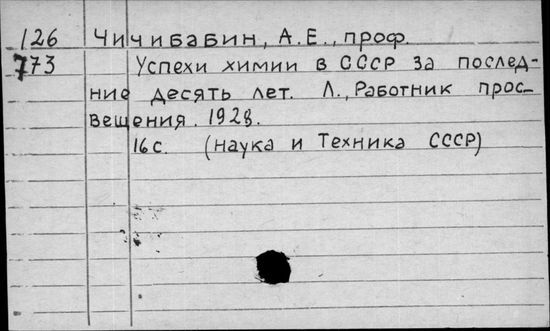 126 Чичибабин, А.Е., проф.
773 Успехи химии в СССР за послед-
ние десять лет. Л., Работник прос-
вещения. 1928.
16 с. (наука и Техника СССР)